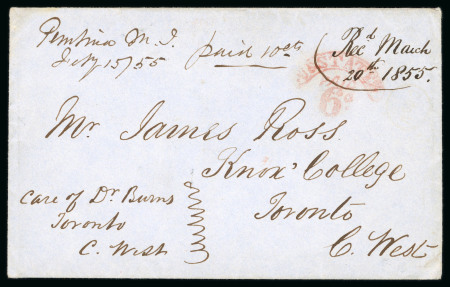 Pembina M.T.
Feby 15/55
paid 10cts
Recd March
20th 1855.
6d
Mr James Ross
Knox' College
Toronto
C. West
care of Dr Burns
Toronto
C. West